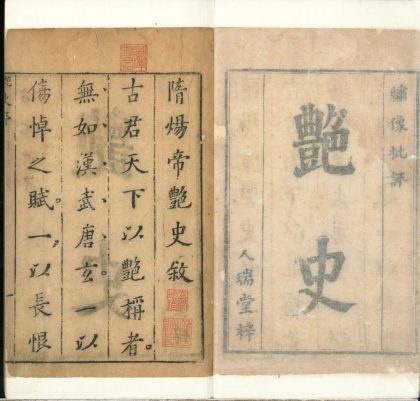 繡像批評
艷史
人瑞堂梓
隋煬帝艷史敘
古君天下以艷稱者。
無如漢武唐玄一以
傷悼之賦。一以長恨